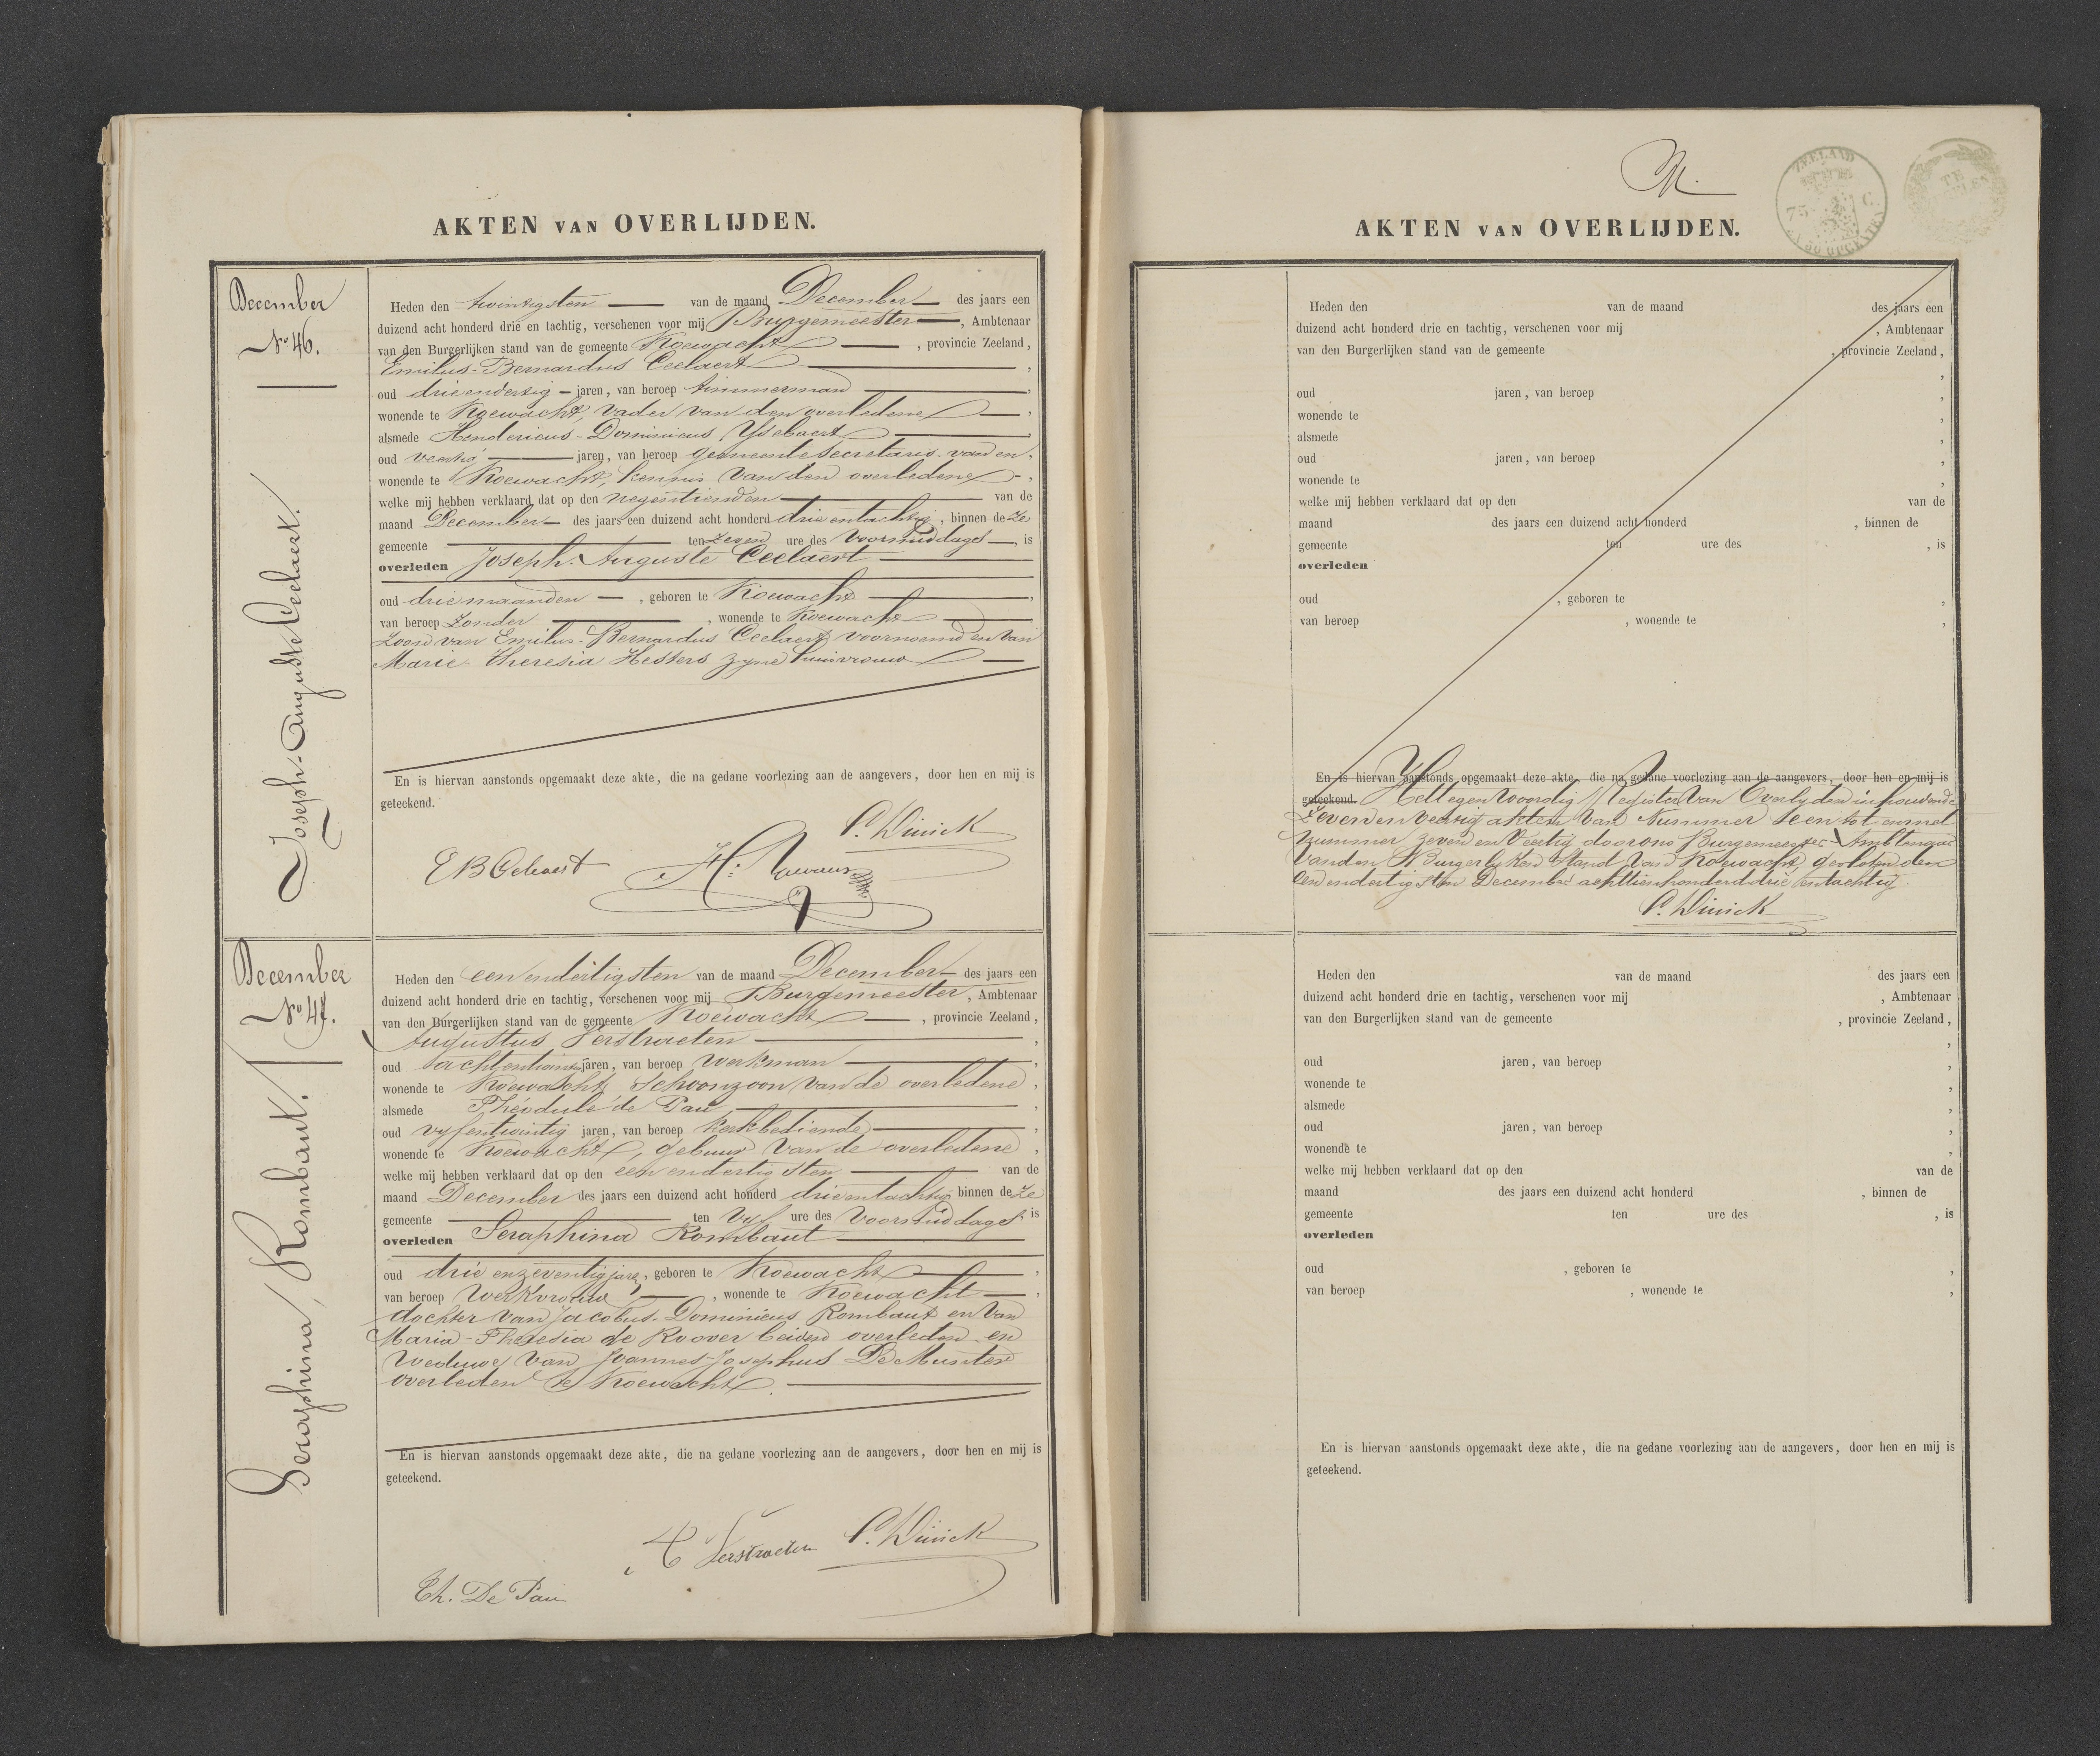 AKTEN VAN OVERLIJDEN.
December
No 46.
Joseph-Auguste Ceelaert.
Heden den twintigsten van de maand December des jaars een
duizend acht honderd drie en tachtig, verschenen voor mij Burgemeester, Ambtenaar
van den Burgerlijken stand van de gemeente Koewacht, provincie Zeeland,
Emilus-Bernardus Ceelaert,
oud drieendertig jaren, van beroep timmerman,
wonende te Koewacht, vader van den overledene,
alsmede Hendericus-Dominicus Ysebaert,
oud veertig jaren, van beroep gemeentesecretaris van en,
wonende te Koewacht, kennis van den overledene,
welke mij hebben verklaard dat op den negentienden van de
maand December des jaars een duizend acht honderd drie entachtig, binnen deze
gemeente ten zeven ure des voormiddags, is
overleden Joseph-Auguste Ceelaert
oud drie maanden, geboren te Koewacht,
van beroep zonder, wonende te Koewacht
zoon van Emilus-Bernardus Ceelaert voornoemd en van
Marie-Theresia Hesters zyne huisvrouw
En is hiervan aanstonds opgemaakt deze akte, die na gedane voorlezing aan de aangevers, door hen en mij is
geteekend.
P. Dinick
E B Celaert
December
No 47.
Seraphina Rombaut.
Heden den eenendertigsten van de maand December des jaars een
duizend acht honderd drie en tachtig, verschenen voor mij Burgemeester, Ambtenaar
van den Burgerlijken stand van de gemeente Koewacht, provincie Zeeland,
Augustus Verstraeten,
oud jaren, van beroep werkman,
wonende te Koewacht, Schoonzoon van de overledene,
alsmede Théodule de Pau,
oud vyfentwintig jaren, van beroep kerkbediende,
wonende te Koewacht, gebuur van de overledene,
welke mij hebben verklaard dat op den een endertigsten van de
maand December des jaars een duizend acht honderd drie entachtig binnen deze
gemeente ten vyf ure des voormiddags is
overleden Seraphina Rombaut
oud drie enzeventig jare, geboren te Koewacht,
van beroep werkvrouw, wonende te Koewacht,
dochter van Jacobus-Dominicus Rombaut en van
Maria-Theresia de Roover beiden overleden en
weduwe van Joannes-Josephus De Munter
overleden te Koewacht.
En is hiervan aanstonds opgemaakt deze akte, die na gedane voorlezing aan de aangevers, door hen en mij is
geteekend.
A Verstraeten P. Dinick
Th. De Pau
ZEELAND
75 C
AKTEN VAN OVERLIJDEN.
Heden den van de maand des jaars een
duizend acht honderd drie en tachtig, verschenen voor mij, Ambtenaar
van den Burgerlijken stand van de gemeente, provincie Zeeland,
,
oud jaren, van beroep,
wonende te,
alsmede,
oud jaren, van beroep,
wonende te,
welke mij hebben verklaard dat op den van de
maand des jaars een duizend acht honderd, binnen de
gemeente ten ure des, is
overleden
oud, geboren te,
van beroep, wonende te,
En is hiervan aanstonds opgemaakt deze akte, die na gedane voorlezing aan de aangevers, door hen en mij is
geteekend. Het tegenwoordig Register van Overlyden inhoudende
Zevenenveertig akten van Nummer Een tot en met
Nummer zeven en Veertig door ons Burgemeester-Ambtenaar
van den Burgerlyken Stand van Koewacht, gesloten den
een endertigsten December achttienhonderd drie entachtig.
P. Dinick
Heden den van de maand des jaars een
duizend acht honderd drie en tachtig, verschenen voor mij, Ambtenaar
van den Burgerlijken stand van de gemeente, provincie Zeeland,
,
oud jaren, van beroep,
wonende te,
alsmede,
oud jaren, van beroep,
wonende te,
welke mij hebben verklaard dat op den van de
maand des jaars een duizend acht honderd, binnen de
gemeente ten ure des, is
overleden
oud, geboren te,
van beroep, wonende te,
En is hiervan aanstonds opgemaakt deze akte, die na gedane voorlezing aan de aangevers, door hen en mij is
geteekend.